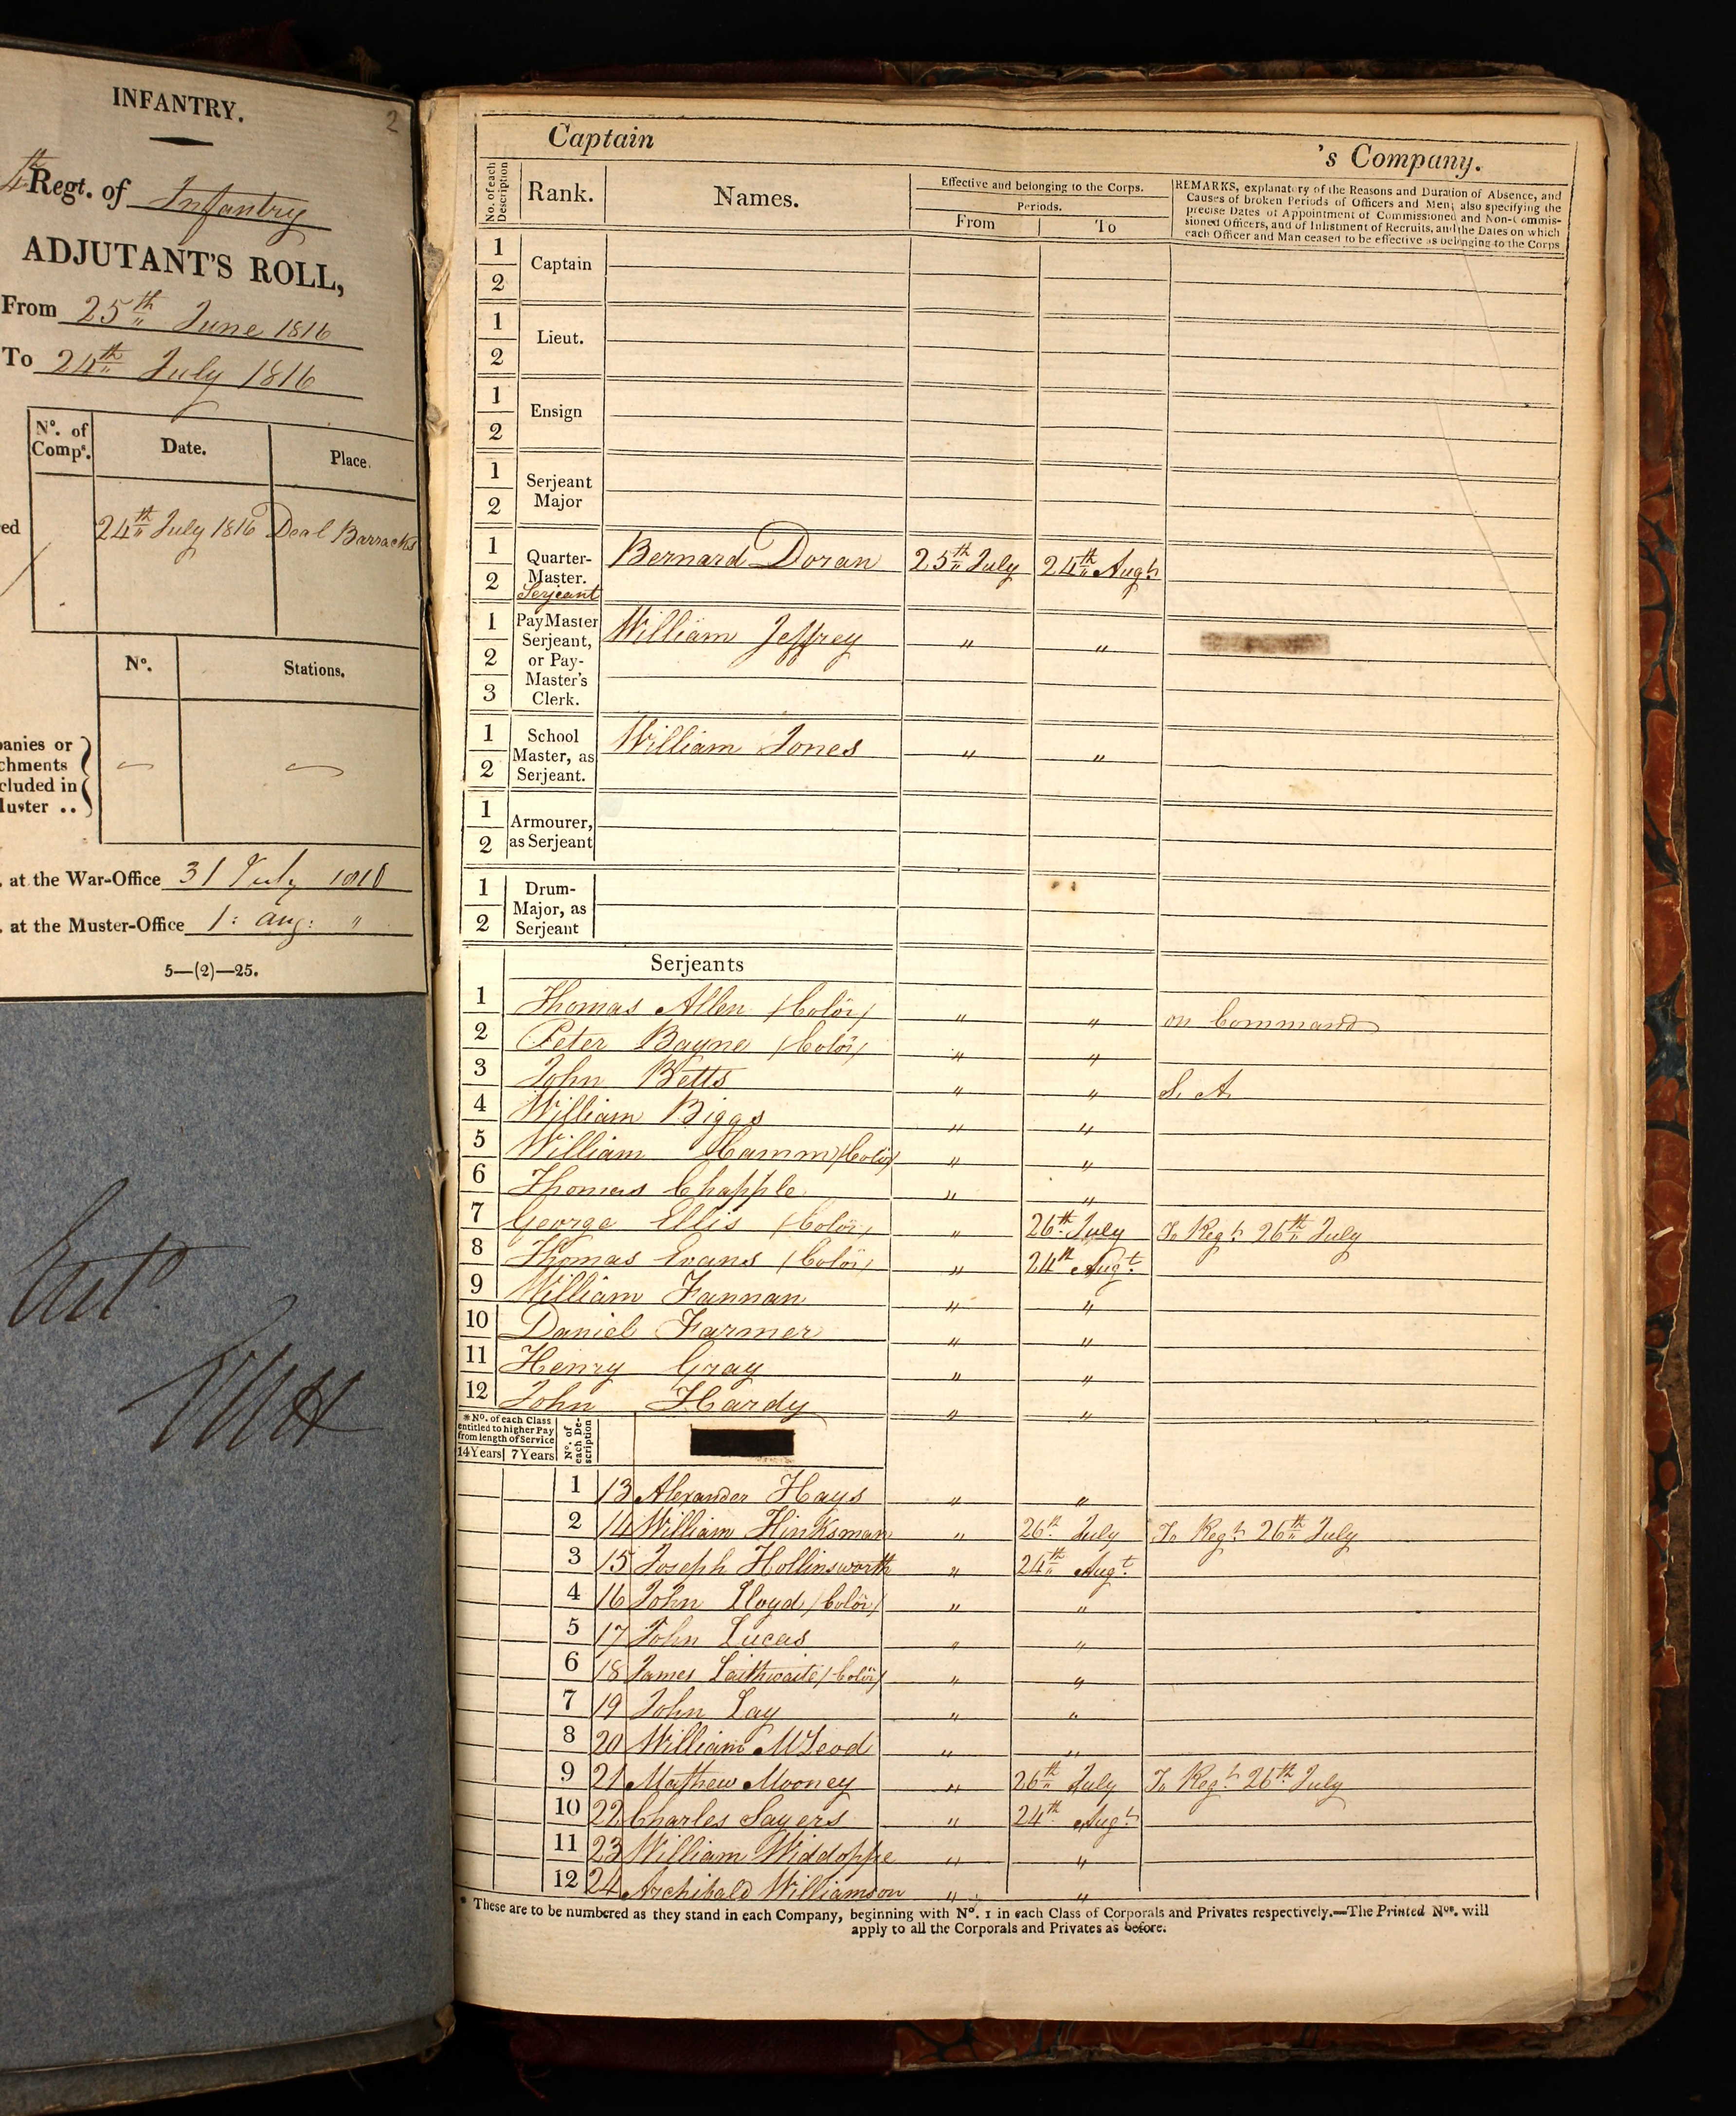 INFANTRY.
2
4th Regt. of Infantry
ADJUTANT'S ROLL,
From 25th June 1816
To 24th July 1816
No. of Comps. Date. Place.
ed 24th July 1816 Deal Barracks
No. Stations.
panies or
chments
cluded in
Muster ..
. at the War-Office 31 July 1816
. at the Muster-Office 1: aug: "
5—(2)—25.
Captain 's Company.
No. of each Description
Rank.
Names.
Effective and belonging to the Corps.
Periods.
From To
REMARKS, explanatory of the Reasons and Duration of Absence, and
Causes of broken Periods of Officers and Men; also specifying the
precise Dates of Appointment of Commissioned and Non-Commis-
sioned Officers, and of Inlistment of Recruits, and the Dates on which
each Officer and Man ceased to be effective as belonging to the Corps
1 2 Captain
1 2 Lieut.
1 2 Ensign
1 2 Serjeant Major
1 2 Quarter-Master. Serjeant Bernard Doran 25th July 24th Augt.
1 2 3 PayMaster Serjeant, or Pay-Master's Clerk. William Jeffrey " "
1 2 School Master, as Serjeant. William Jones " "
1 2 Armourer, as Serjeant
1 2 Drum-Major, as Serjeant
Serjeants
1 Thomas Allen (Color) " " on Command
2 Peter Bayne (Color) " "
3 John Betts " " S. A.
4 William Biggs " "
5 William Camm (Color) " "
6 Thomas Chapple " "
7 George Ellis (Color) " 26th July To Regt. 26th July
8 Thomas Evans (Color) " 24th Augt.
9 William Fannan " "
10 Daniel Farmer " "
11 Henry Gray " "
12 John Hardy " "
* No. of each Class
entitled to higher Pay
from length of Service
14 Years 7 Years
No. of each Description
1 13 Alexander Hays " "
2 14 William Hinksman " 26th July To Regt. 26th July
3 15 Joseph Hollinsworth " 24th Augt.
4 16 John Lloyd (Color) " "
5 17 John Lucas " "
6 18 James Laithwaite (Color) " "
7 19 John Lay " "
8 20 William McLeod " "
9 21 Mathew Mooney " 26th July To Regt. 26th July
10 22 Charles Sayers " 24th Augt.
11 23 William Widdoppe " "
12 24 Archibald Williamson " "
* These are to be numbered as they stand in each Company, beginning with No. 1 in each Class of Corporals and Privates respectively.—The Printed Nos. will
apply to all the Corporals and Privates as before.